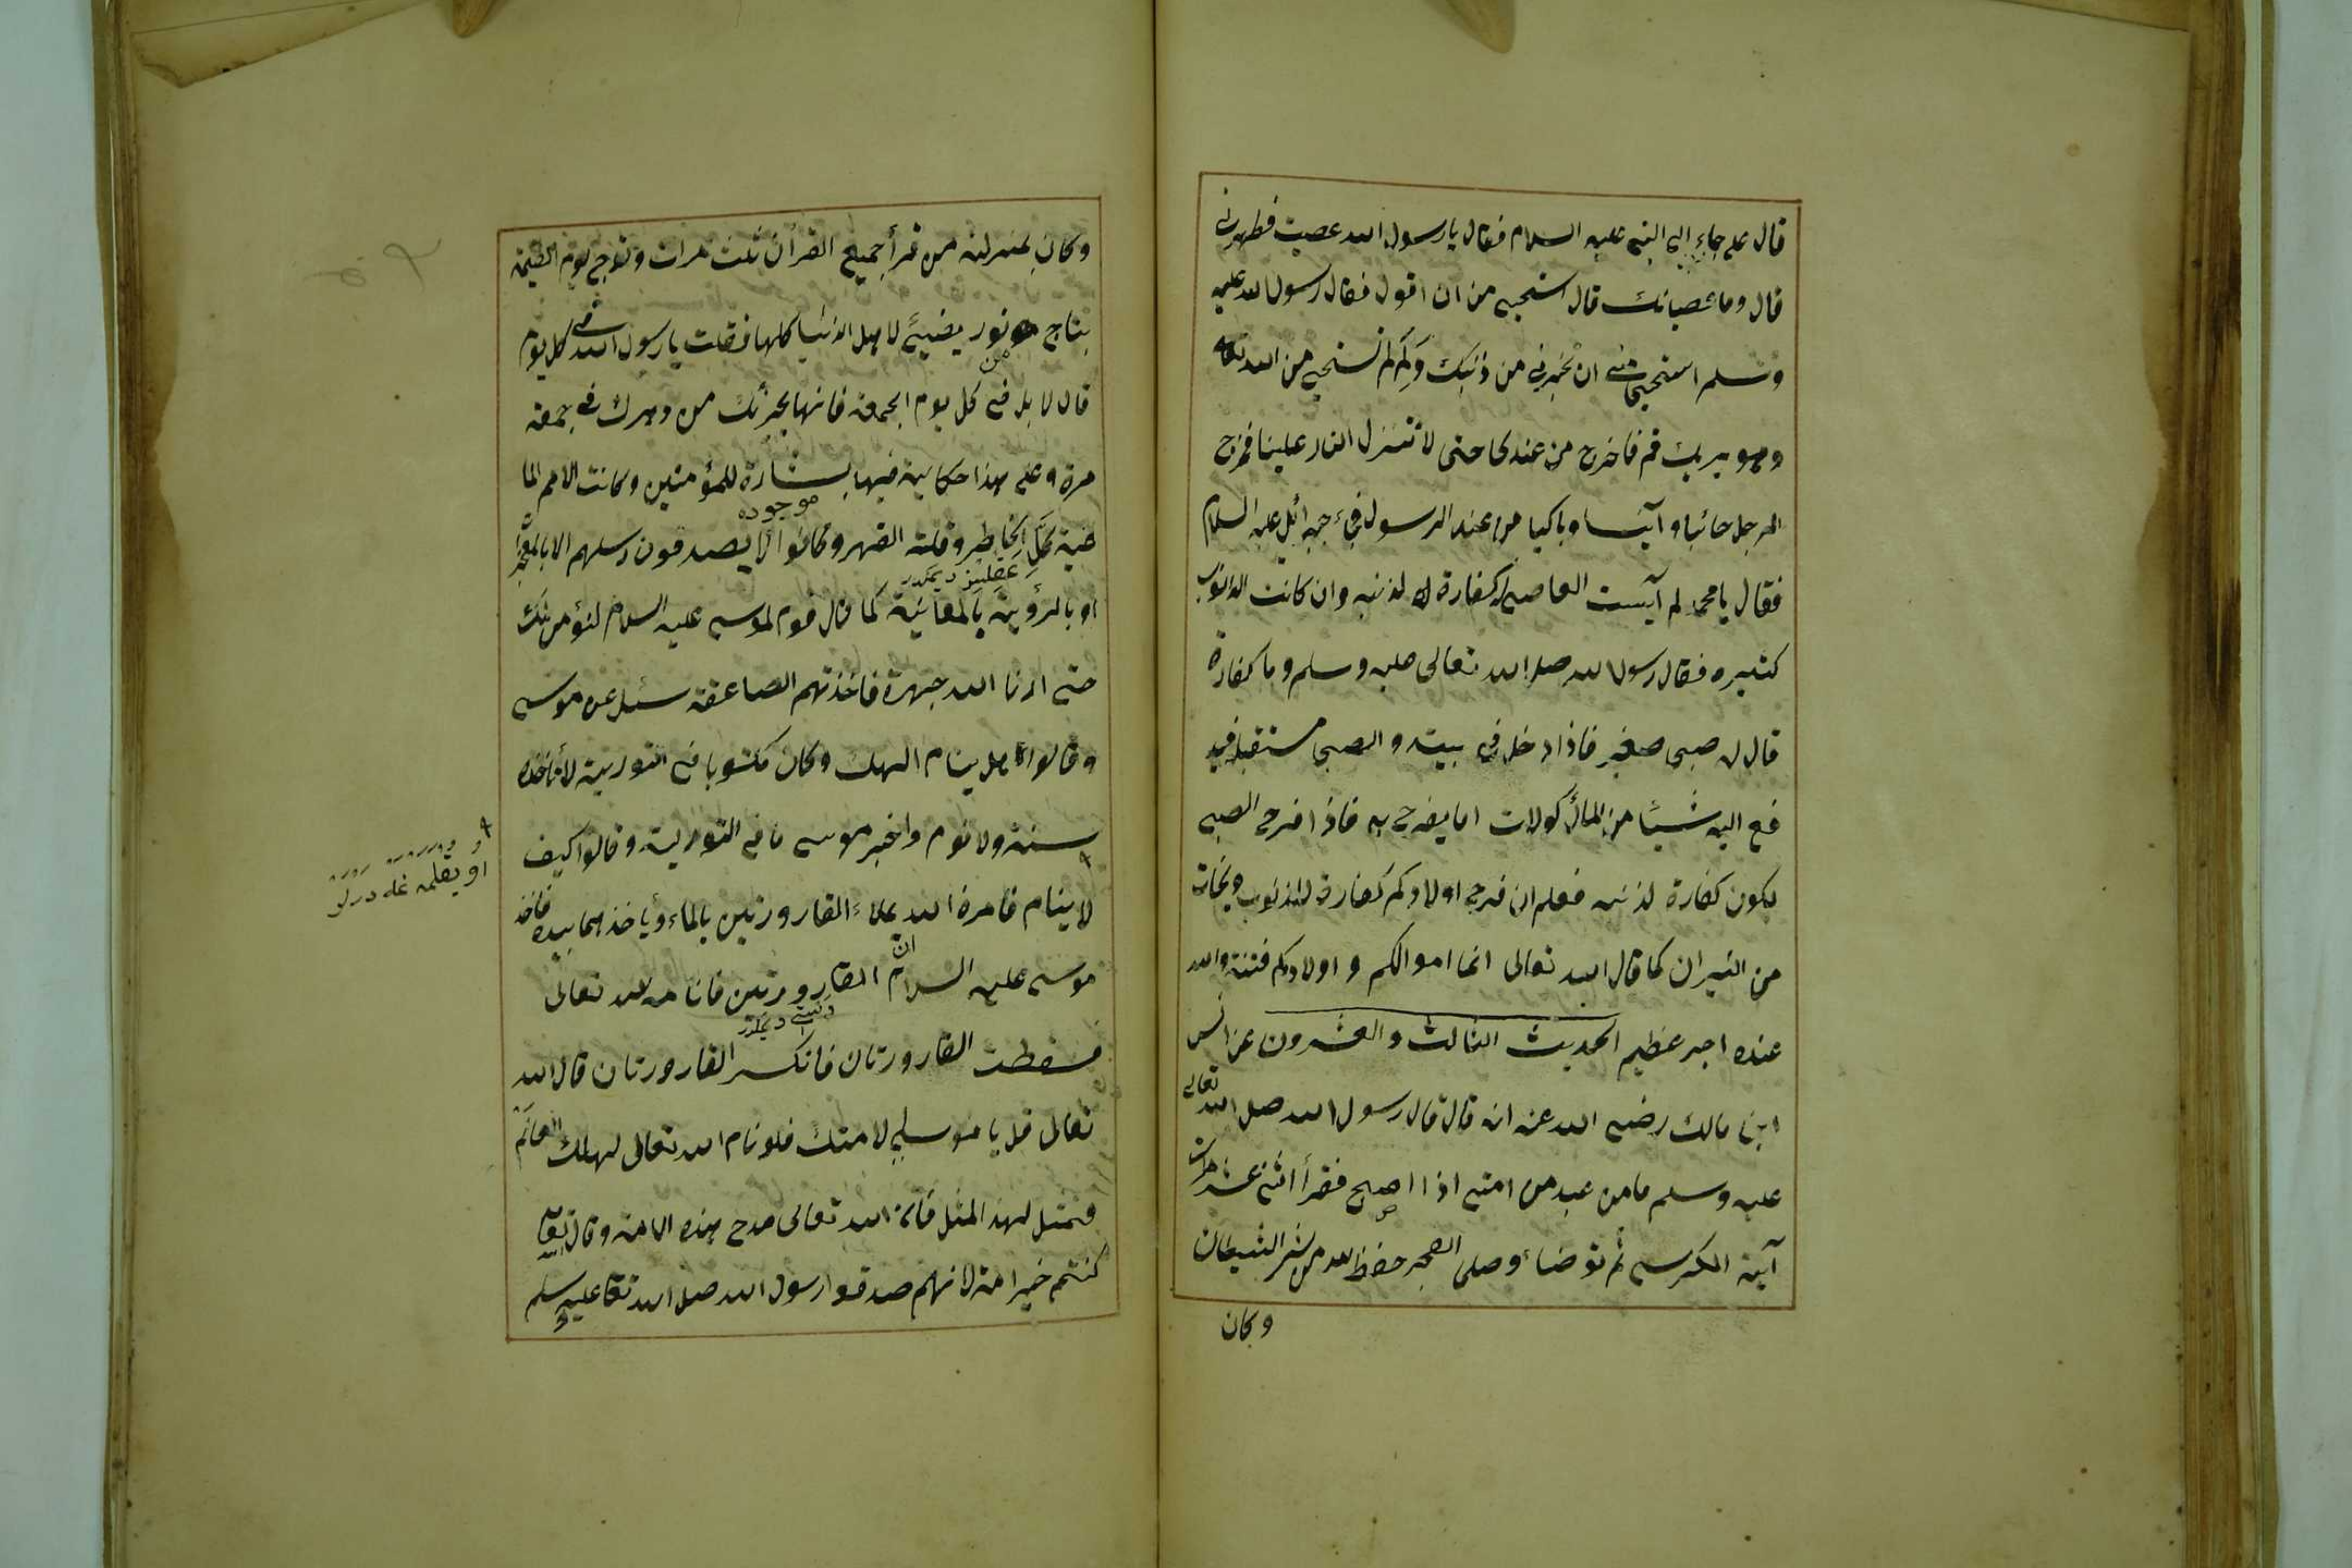 قال على جاء الى النبي عليه السلام فقال يا رسول الله عصيت فطهرني
قال وما عصيانك قال استحيي من ان اقول فقال رسول الله عليه
وسلم استحيي مني ان تخبرني من ذنبك ولم لم تستحي من الله تعالى
وهو يريك قم فاخرج من عندنا حتى لا تنزل النار علينا فخرج
الرجل خائبا وآيسا وباكيا من عند الرسول فجاء جبرائيل عليه السلام
فقال يا محمد لم آيست العاصي له كفارة لذنبه وان كانت الذنوب
كثيره فقال رسول الله صلى الله تعالى عليه وسلم وما كفارة
قال له صبي صغير فاذا دخل في بيته والصبي مستقبل فيد
فع اليه شيئا من المأكولات اما يفرح به فاذا فرح الصبي
يكون كفارة لذنبه فعلم ان فرح اولادكم كفارة للذنوب ونجات
من النيران كما قال الله تعالى انما اموالكم واولادكم فتنة والله
عنده اجر عظيم الحديث الثالث والعشرون عن انس
ابن مالك رضي الله عنه انه قال قال رسول الله صلى الله تعالى
عليه وسلم ما من عبد من امتي اذا اصبح فقرأ اثنى عشر مرات
آية الكرسي ثم توضاء وصلى الصبح حفظ الله من شر الشيطان
وكان
وكان بمنزلة من قرأ جميع القرأن ثلث مرات وتوج يوم القيمة
بتاج من نور يضيئ لاهل الدنيا كلها فقلت يا رسول الله في كل يوم
قال لا بل في كل يوم الجمعة فانها يجزئك من دهرك في جمعة
مرة وعلى هذا حكاية فيها بشارة للمؤمنين وكانت الامم الما
موجوده
ضية الخاطر وقلة وكانوا لا يصدقون رسلهم الا بالمعجزا
او بالرؤية بالمعاينة كما قال قوم لموسى عليه السلام لن نؤمن لك
حتى ارنا الله جهرة فاخذتهم الصاعقة سئل عن موسى
وقالوا هل ينام الهك وكان مكتوبا في التورية لا تأخذه
سنة ولا نوم واخبر موسى ما في التورية وقالوا كيف
لا ينام فامره الله بملاء القارورتين بالماء ويأخذهما بيده فاخذ
موسى عليه السلام القارورتين فانامه الله تعالى
فسقطت القارورتان فانكسر القارورتان قال الله
تعالى قل يا موسى لامتك فلو نام الله تعالى لهلك العالم
فتمثل لهذ المثل فان الله تعالى مدح هذه الامة وقال تعالى
كنتم خير امة لانهم صدقوا رسول الله صلى الله تعا عليه وسلم